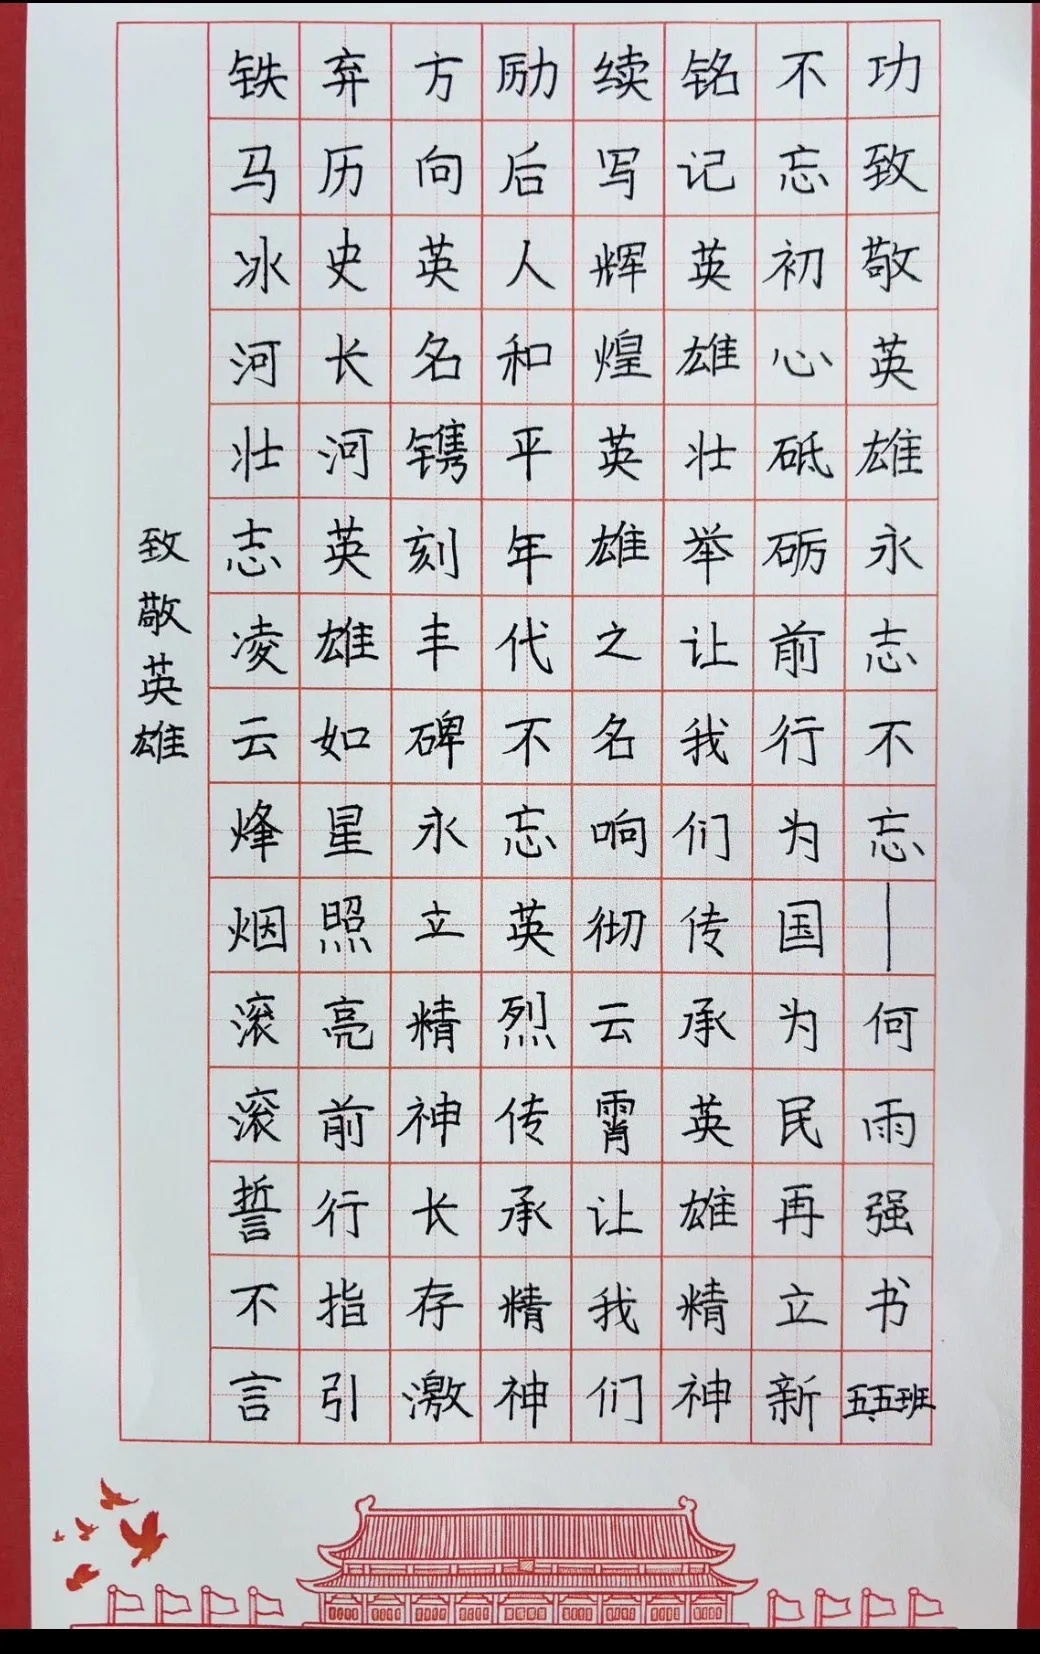 致敬英雄
铁马冰河壮志凌云烽烟滚滚誓不言
弃历史长河英雄如星照亮前行指引
方向英名镌刻丰碑永立精神长存激
励后人和平年代不忘英烈传承精神
续写辉煌英雄之名响彻云霄让我们
铭记英雄壮举让我们传承英雄精神
不忘初心砥砺前行为国为民再立新
功致敬英雄永志不忘—何雨强书五.五班